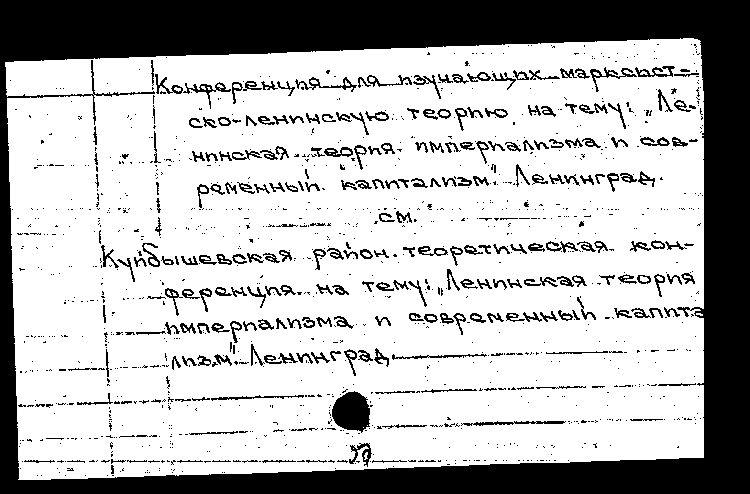 Конференция для изучающих марксист-
ско-ленинскую теорию на тему: „Ле-
нинская теория империализма и сов-
ременный капитализм". Ленинград.
см.
Куйбышевская район. теоретическая кон-
ференция на тему: „Ленинская теория
империализма и современный капита
лизм". Ленинград.